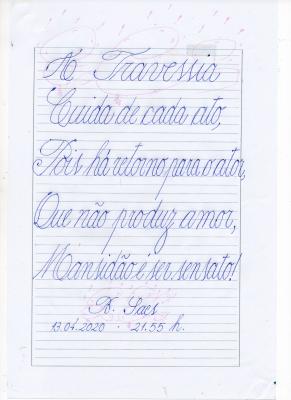 A Travessia
Cuida de cada ato,
Pois há retorno para o ator,
Que não produz amor,
Mansidão é ser sensato!
B. Saes
13.04.2020 . 21:55 h.